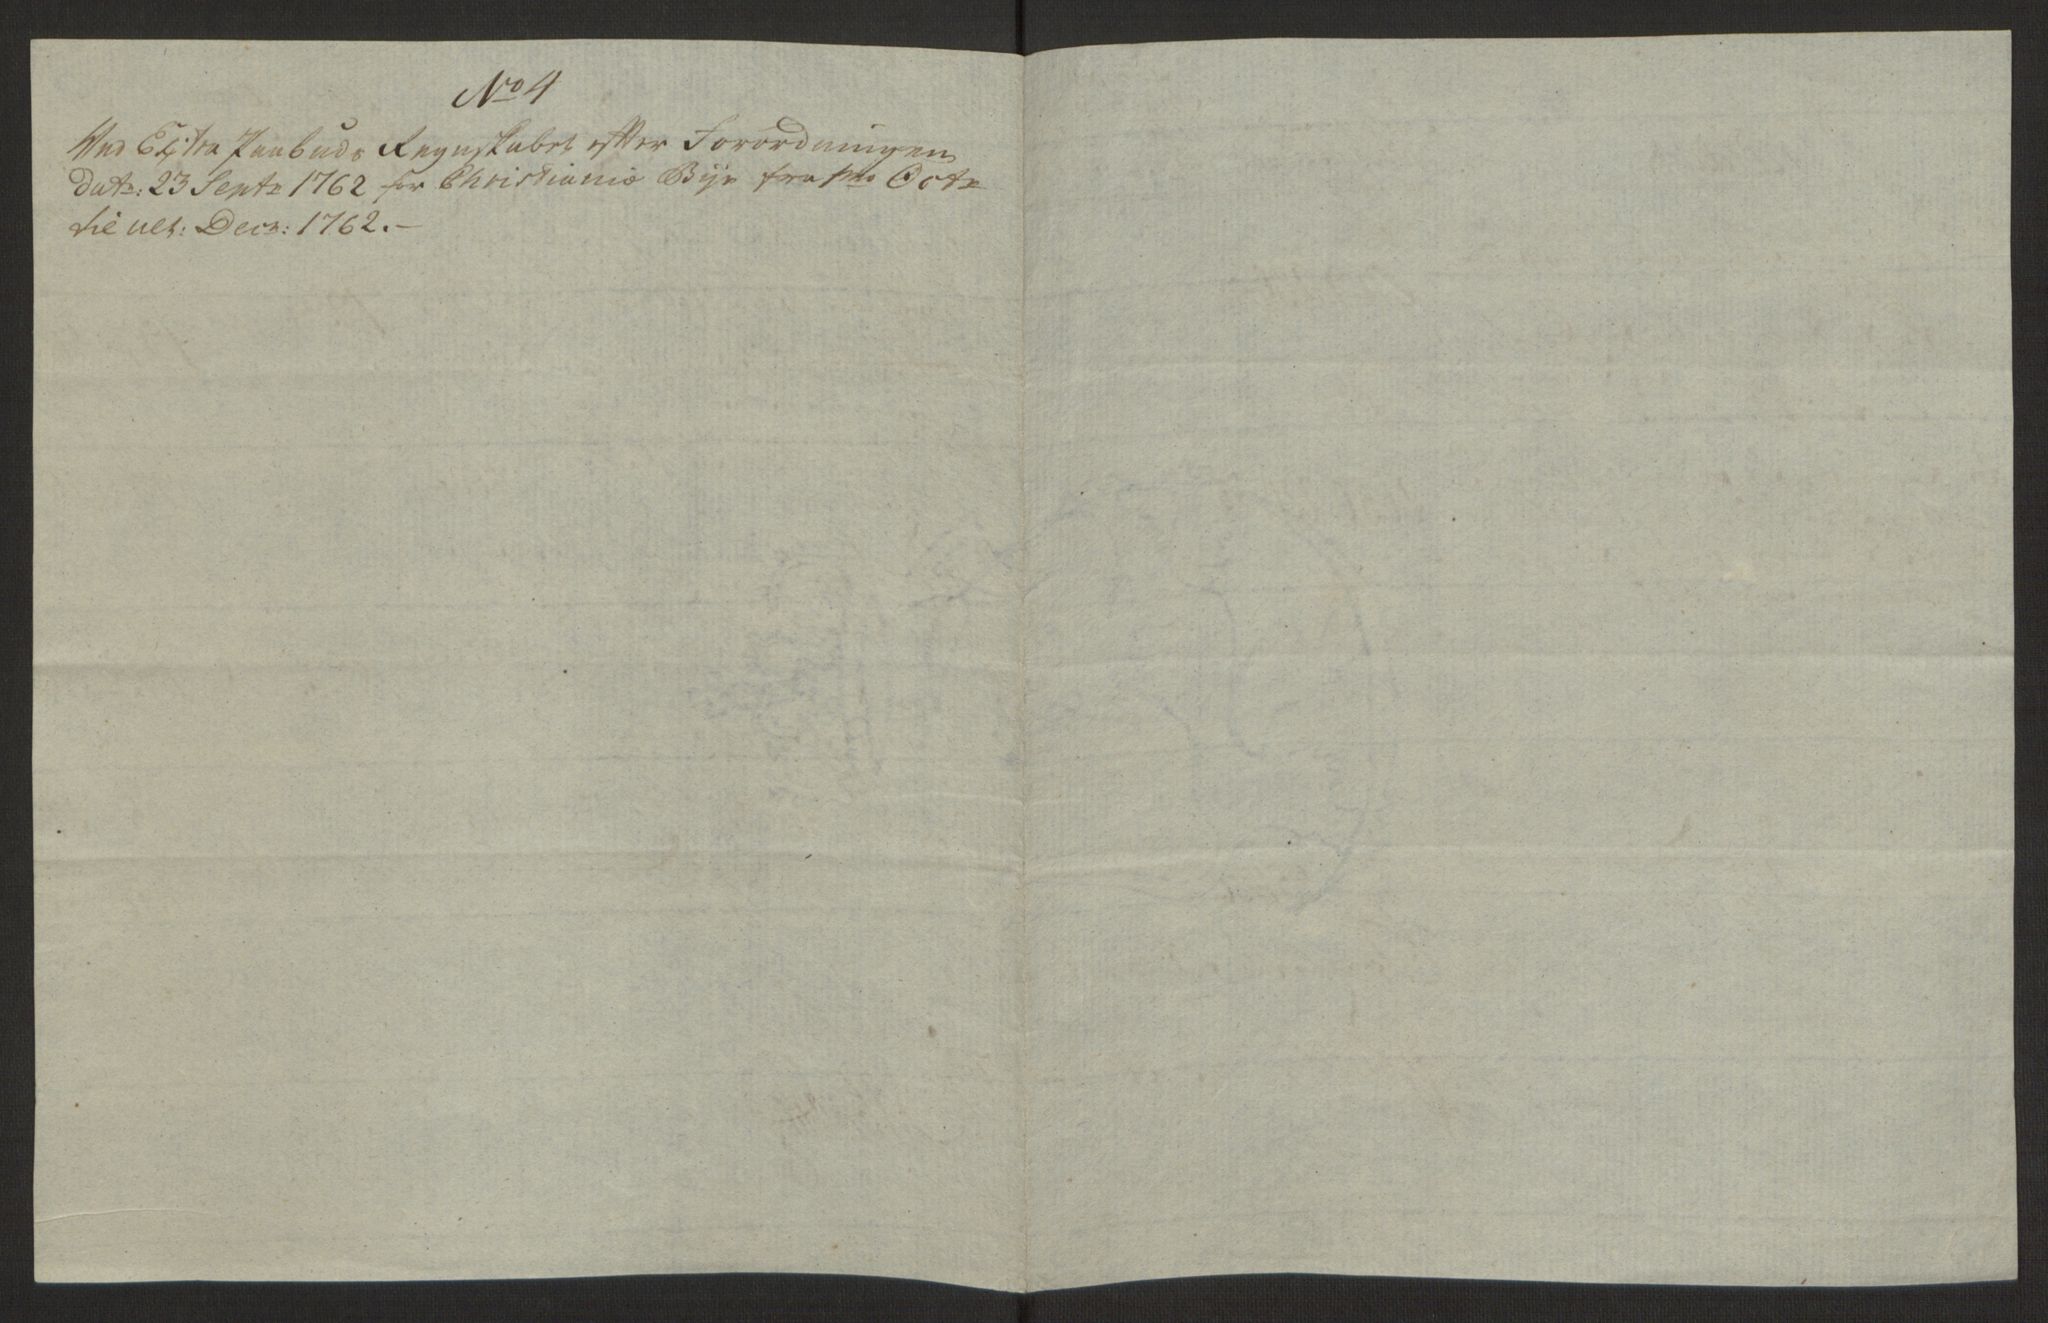 No 4
Ved Extra Paabuds Regnskabet efter Forordningen
Dat: 23 Septr 1762 for Christiania Bye fra pmo Octr
til ult: Decr: 1762.-